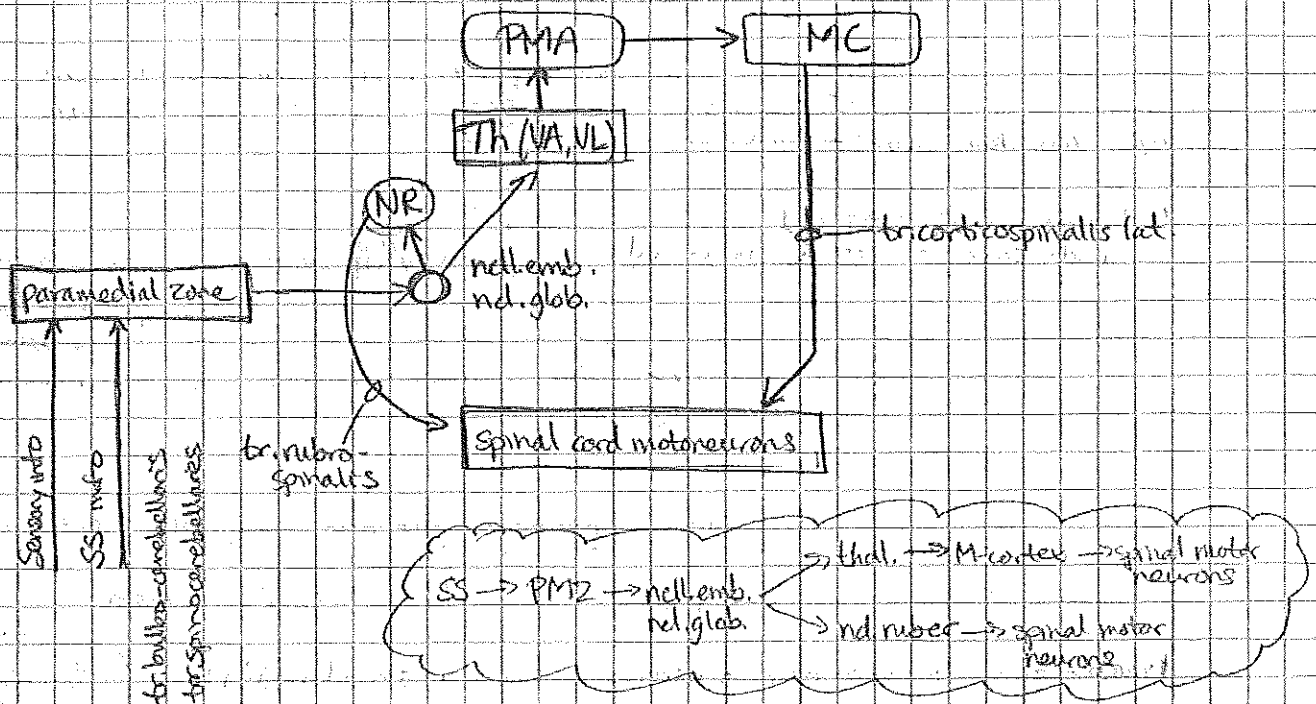 PMA
MC
Th (VA, VL)
NR
tr. corticospinalis lat.
paramedial zone
ncll. emb.
ncl. glob.
tr. rubro-
spinalis
spinal cord motoneurons
Sensory info
SS info
tr. bulbo-cerebellaris
tr. spinocerebellares
SS → PMZ → ncll. emb.
ncl. glob.
thal. → M-cortex → spinal motor
neurons
ncl. ruber → spinal motor
neurons